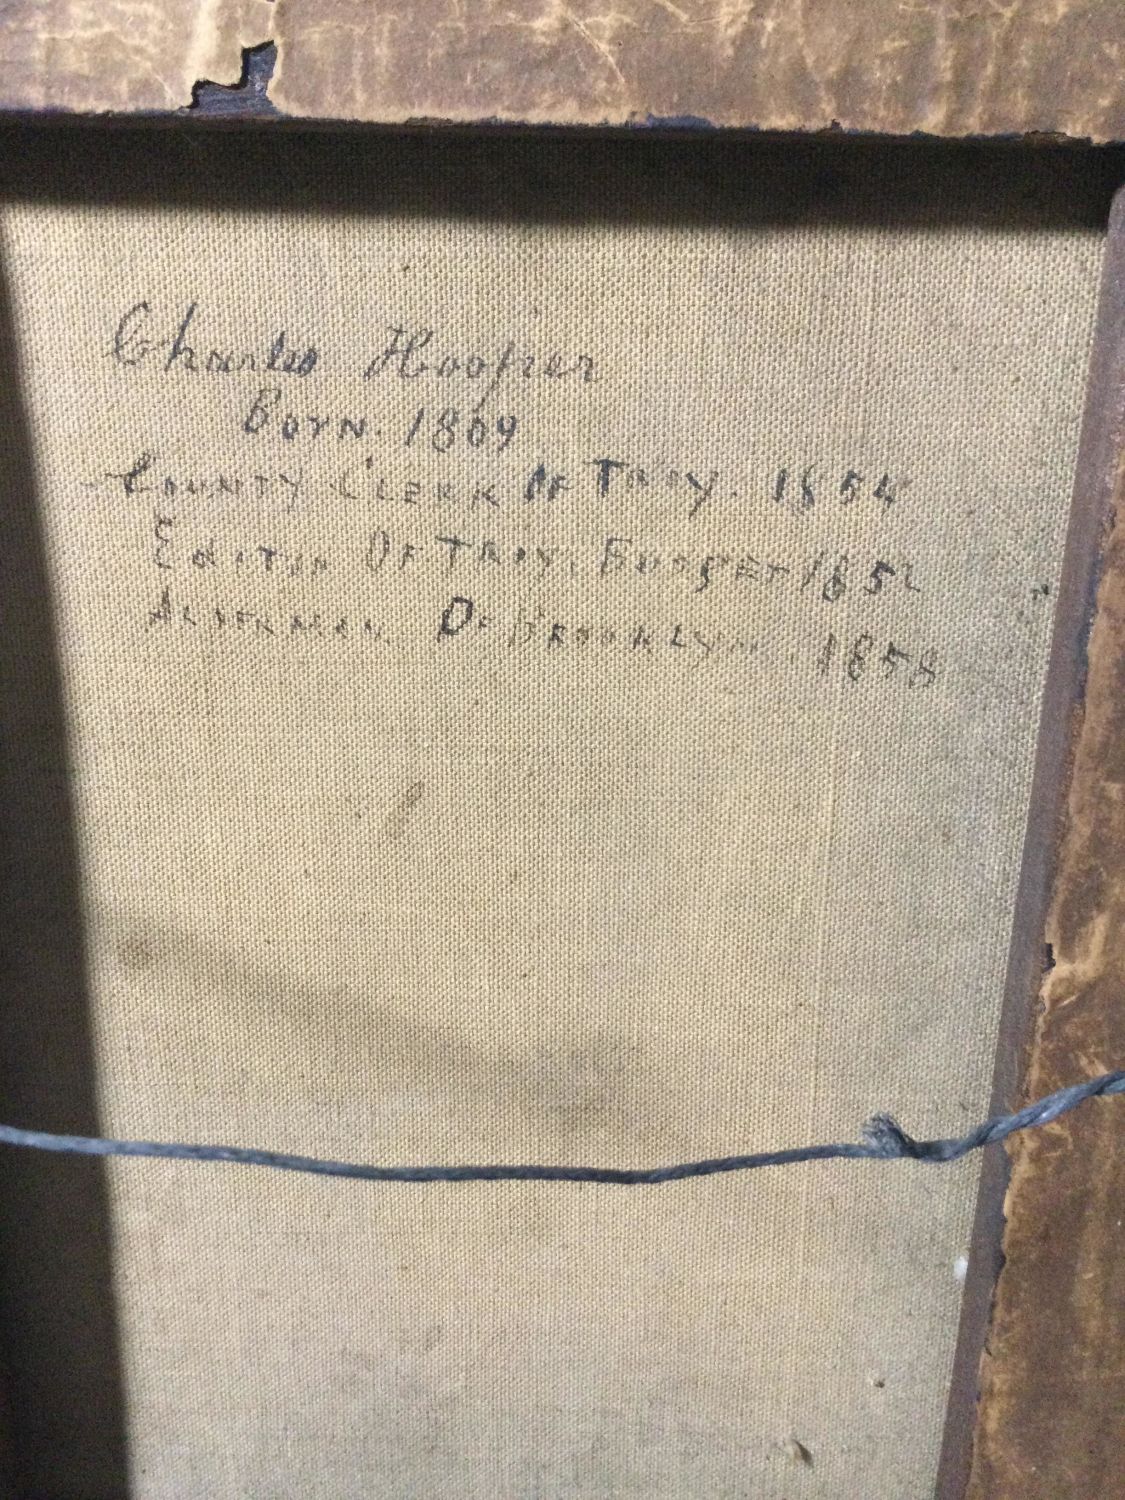 Charles Hooper
Born. 1809
County Clerk Of Troy. 1854
Editor Of Troy, Budget 1852
Alderman Of Brooklyn 1858